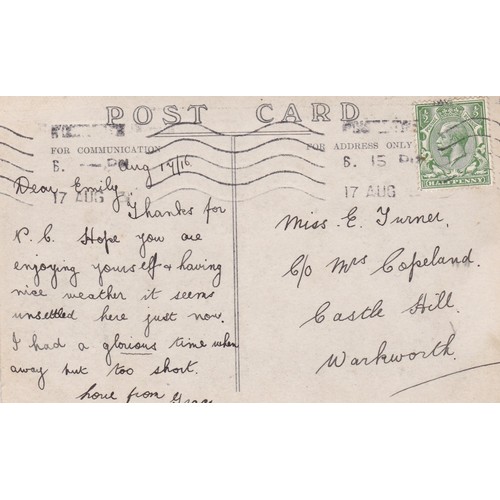 POST CARD
FOR COMMUNICATION
FOR ADDRESS ONLY
6. 15 P
17 AUG
17 AUG
HALF PENNY
Aug 17/16
Dear Emily
Thanks for
P. C. Hope you are
enjoying yourself + having
nice weather it seems
unsettled here just now.
I had a glorious time when
away but too short.
Love from
Miss. E. Turner.
C/o Mrs Copeland.
Castle Hill.
Warkworth.